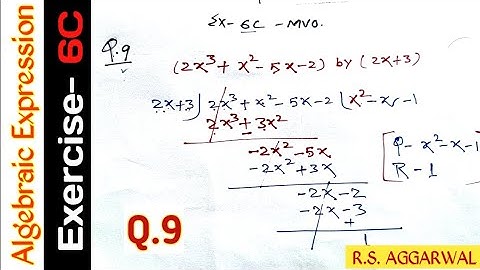 Algebraic Expression
Exercise- 6C
Ex- 6C - MVO.
Q.9
(2x³ + x² - 5x - 2) by (2x+3)
2x+3) 2x³ + x² - 5x - 2 (x² - x - 1
2x³ + 3x²
-
-2x² - 5x
-2x² + 3x
-2x - 2
-2x - 3
+
1
[Q - x² - x - 1
R - 1
Q.9
R.S. AGGARWAL